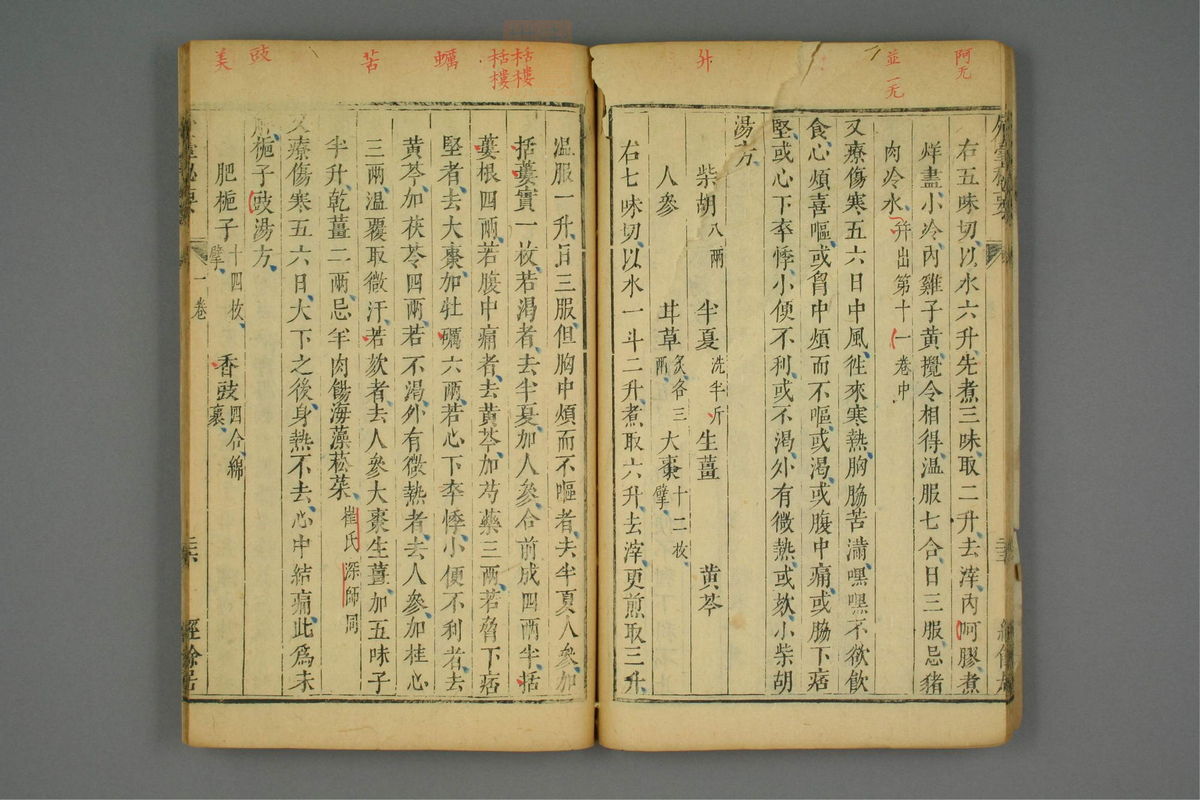 阿无
並一无
廾
右五味切以水六升先煮三味取二升去滓內呵膠煮
烊盡小冷內雞子黃攪令相得溫服七合日三服忌豬
肉冷水幷出第十一卷中
又療傷寒五六日中風徃來寒熱胸脇苦滿嘿嘿不欲飮
食心煩喜嘔或胷中煩而不嘔或渴或腹中痛或脇下痞
堅或心下卒悸小便不利或不渴外有微熱或欬小柴胡
湯方
柴胡八兩 半夏洗半斤 生薑 黃芩
人參 甘草炙各三兩 大棗十二枚擘
右七味切以水一斗二升煮取六升去滓更煎取三升
括樓
括樓
蠣
苦
豉
美
溫服一升日三服但胸中煩而不嘔者去半夏人參加
括蔞實一枚若渴者去半夏加人參合前成四兩半括
蔞根四兩若腹中痛者去黃芩加芍藥三兩若脅下痞
堅者去大棗加牡礪六兩若心下卒悸小便不利者去
黃芩加茯苓四兩若不渴外有微熱者去人參加桂心
三兩溫覆取微汗若欬者去人參大棗生薑加五味子
半升乾薑二兩忌羊肉餳海藻菘菜崔氏深師同
又療傷寒五六日大下之後身熱不去心中結痛此爲未
解梔子豉湯方
肥梔子十四枚擘 香豉四合綿裹
一卷
二六
經餘居